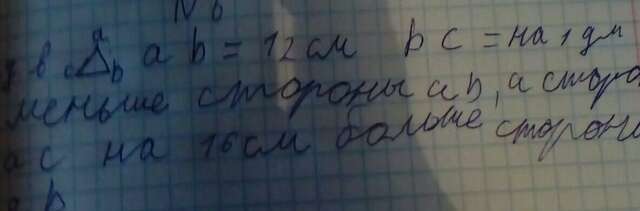 №6
в a c b a b = 12 см b c = на 1 дм
меньше стороны a b, а сторо
a c на 16 см больше сторон
b